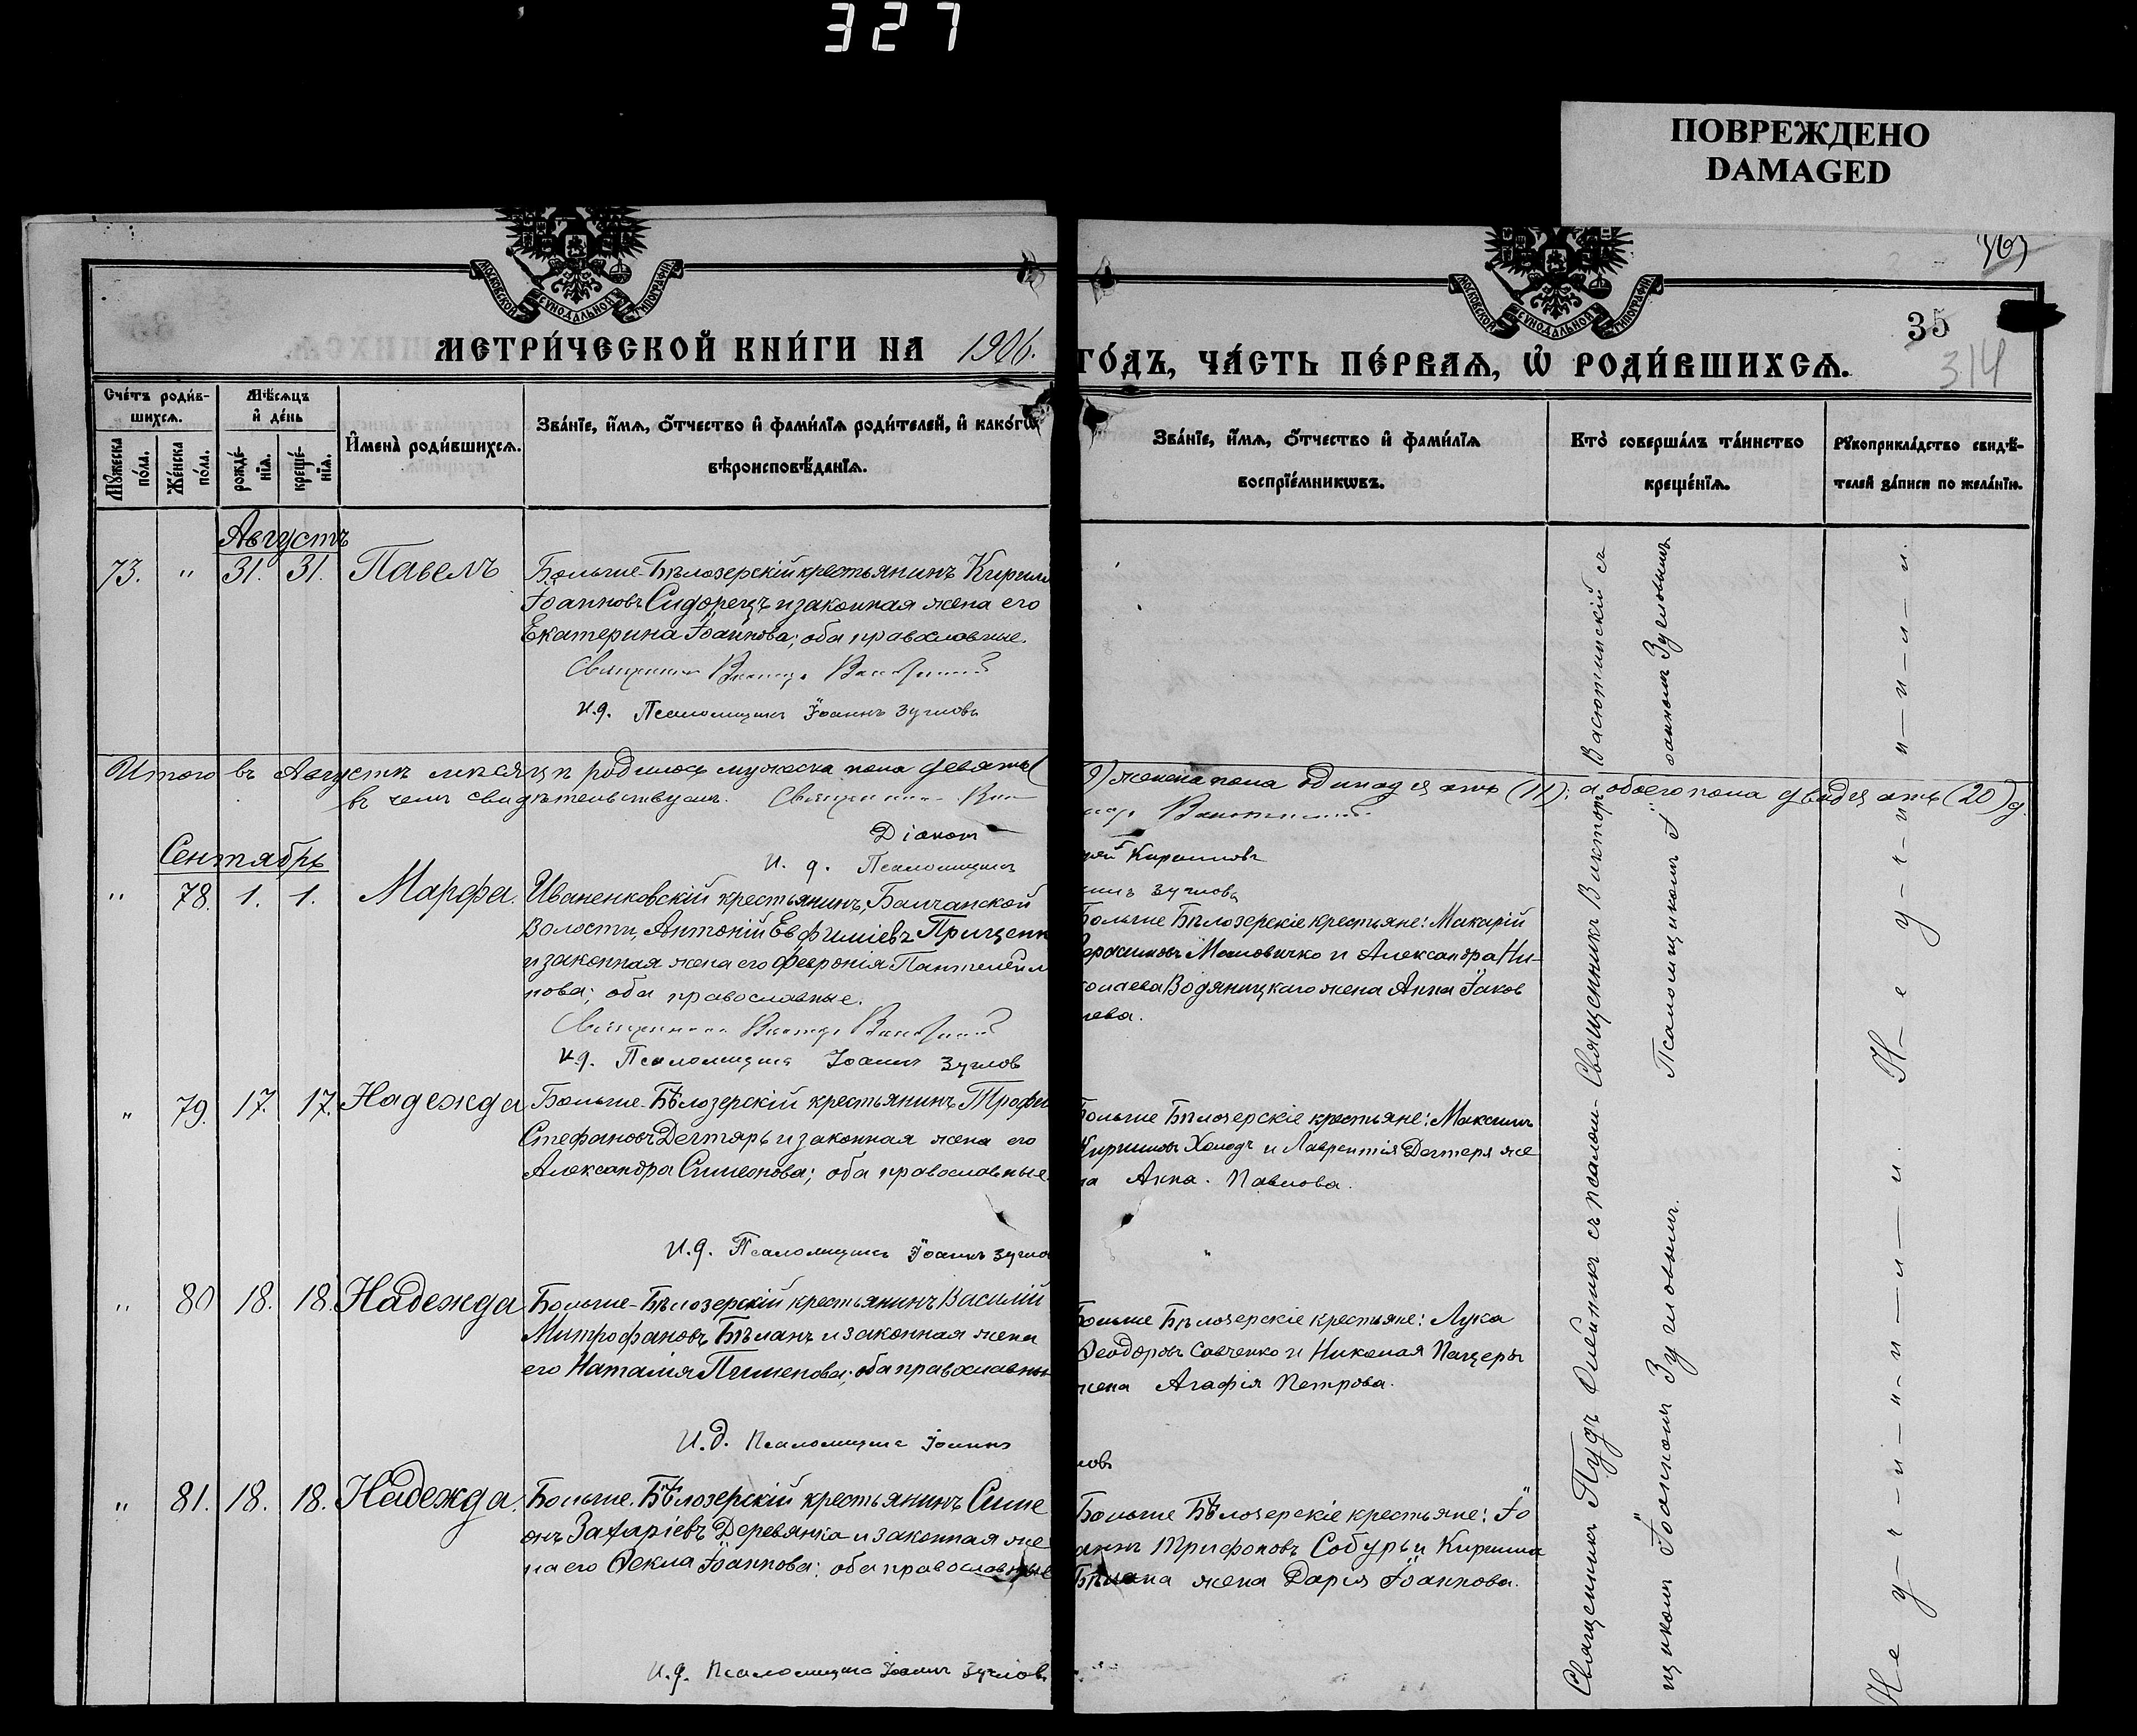 327
ПОВРЕЖДЕНО
DAMAGED
МОСКОВСКОЙ СУНОДАЛЬНОЙ ТИПОГРАФІИ
МОСКОВСКОЙ СУНОДАЛЬНОЙ ТИПОГРАФІИ
35
314
МЕТРИ́ЧЕСКОЙ КНИ́ГИ НА 1906. ГО́ДЪ, ЧА́СТЬ ПЕ́РВАѦ, Ѡ҆ РОДИ́ВШИХСѦ.
Сче́тъ роди́в-
шихсѧ.
Мꙋ́жеска по́ла.
Же́нска по́ла.
Мѣ́сѧцъ
и҆ де́нь
рожде́-
нїѧ.
креще́-
нїѧ.
И҆мена̀ роди́вшихсѧ.
Зва́нїе, и҆́мѧ, ѻ҆́тчество и҆ фами́лїѧ роди́телей, и҆ како́гѡ
вѣроисповѣ́данїѧ.
Зва́нїе, и҆́мѧ, ѻ҆́тчество и҆ фами́лїѧ
воспрїе́мникѡвъ.
Кто̀ соверша́лъ та́инство
креще́нїѧ.
Рꙋкоприкла́дство свидѣ́-
телей за́писи по жела́нїю.
Августъ
73. " 31. 31. Павелъ
Больше-Бѣлозерскій крестьянинъ Кирилл
Іоанновъ Сидорецъ и законная жена его
Екатерина Іоаннова; оба православные.
Священникъ Викторъ Васютинскій
И.д. Псаломщика Іоаннъ Зугловъ
Итого въ Августѣ мѣсяцѣ родилось мужеска пола девять (9) женска пола одинадцать (11); а обоего пола двадцать (20) д.
въ чемъ свидѣтельствуемъ. Священникъ Викторъ Васютинскій
Діаконъ Кирилловъ
И. д. Псаломщика Зугловъ
Сентябрь
" 78. 1. 1. Марфа.
Иваненковскій крестьянинъ, Балчанской
Волости, Антоній Евфиміевъ Прищенк
и законная жена его Февронія Пантелеим
нова; оба православные.
Священникъ Викторъ Васютинскій
И.д. Псаломщика Іоаннъ Зуглов
Больше Бѣлозерскіе крестьяне: Макарій
Герасимовъ Маловичко и Александра Ни-
колаева Водяницкаго жена Анна Іаков
лева.
" 79. 17. 17. Надежда
Больше-Бѣлозерскій крестьянинъ Трофи
Стефановъ Дегтярь и законная жена его
Александра Симеонова; оба православные
И.д. Псаломщика Іоаннъ Зугло
Больше Бѣлозерскіе крестьяне: Максимъ
Кирилловъ Холодъ и Лаврентія Дегтеря же
на Анна. Павлова.
" 80 18. 18. Надежда
Больше-Бѣлозерскій крестьянинъ Василій
Митрофановъ Бѣланъ и законная жена
его Наталія Пименова; оба православны
И.д. Псаломщика Іоаннъ
ловъ
Больше Бѣлозерскіе крестьяне: Лука
Ѳеодоровъ Савченко и Николая Пащеры
жена Агафія Петрова.
" 81. 18. 18. Надежда.
Больше-Бѣлозерскій крестьянинъ Симе
онъ Захаріевъ Деревянка и законная же
на его Ѳекла Іоаннова; оба православные
И.д. Псаломщика Іоаннъ Зугловъ
Больше Бѣлозерскіе крестьяне: Іо
аннъ Трифоновъ Собурь и Кирилла
Бѣлана жена Дарія Іоаннова.
Священникъ Викторъ Васютинскій съ
Псаломщикомъ Іоанномъ Зугловымъ
Священникъ Пудъ Олейникъ съ псалом-
щикомъ Іоанномъ Зугловымъ.
Не у-ч-и-н-и-л-и.
Не у-ч-и-н-и-л-и.